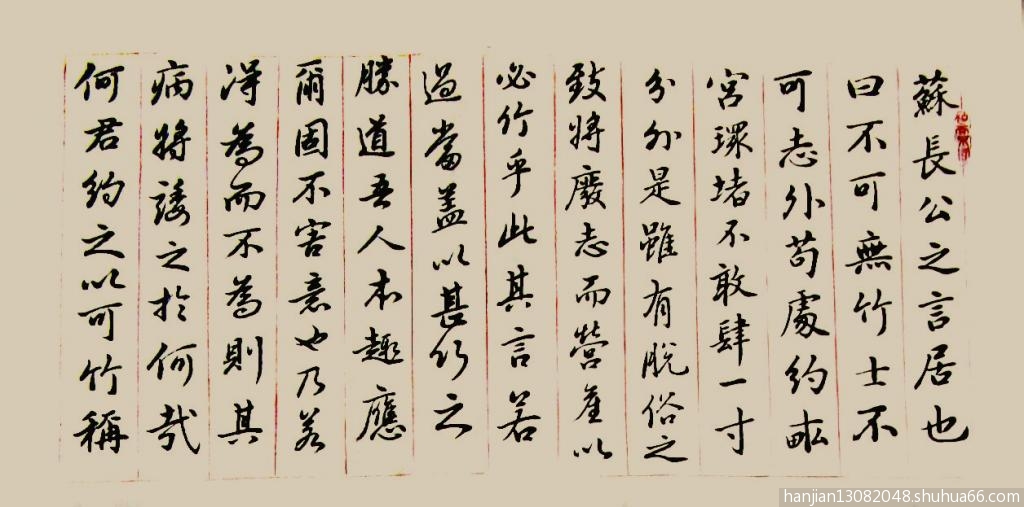 蘇長公之言居也
曰不可無竹士不
可志外苟處約畝
宮環堵不敢肆一寸
分外是雖有脫俗之
致將廢志而營產以
必竹乎此其言若
過當蓋以甚竹之
勝道吾人本趣應
爾固不害意也乃若
得為而不為則其
病將諉之於何哉
何君約之以可竹稱
hanjian13082048.shuhua66.com